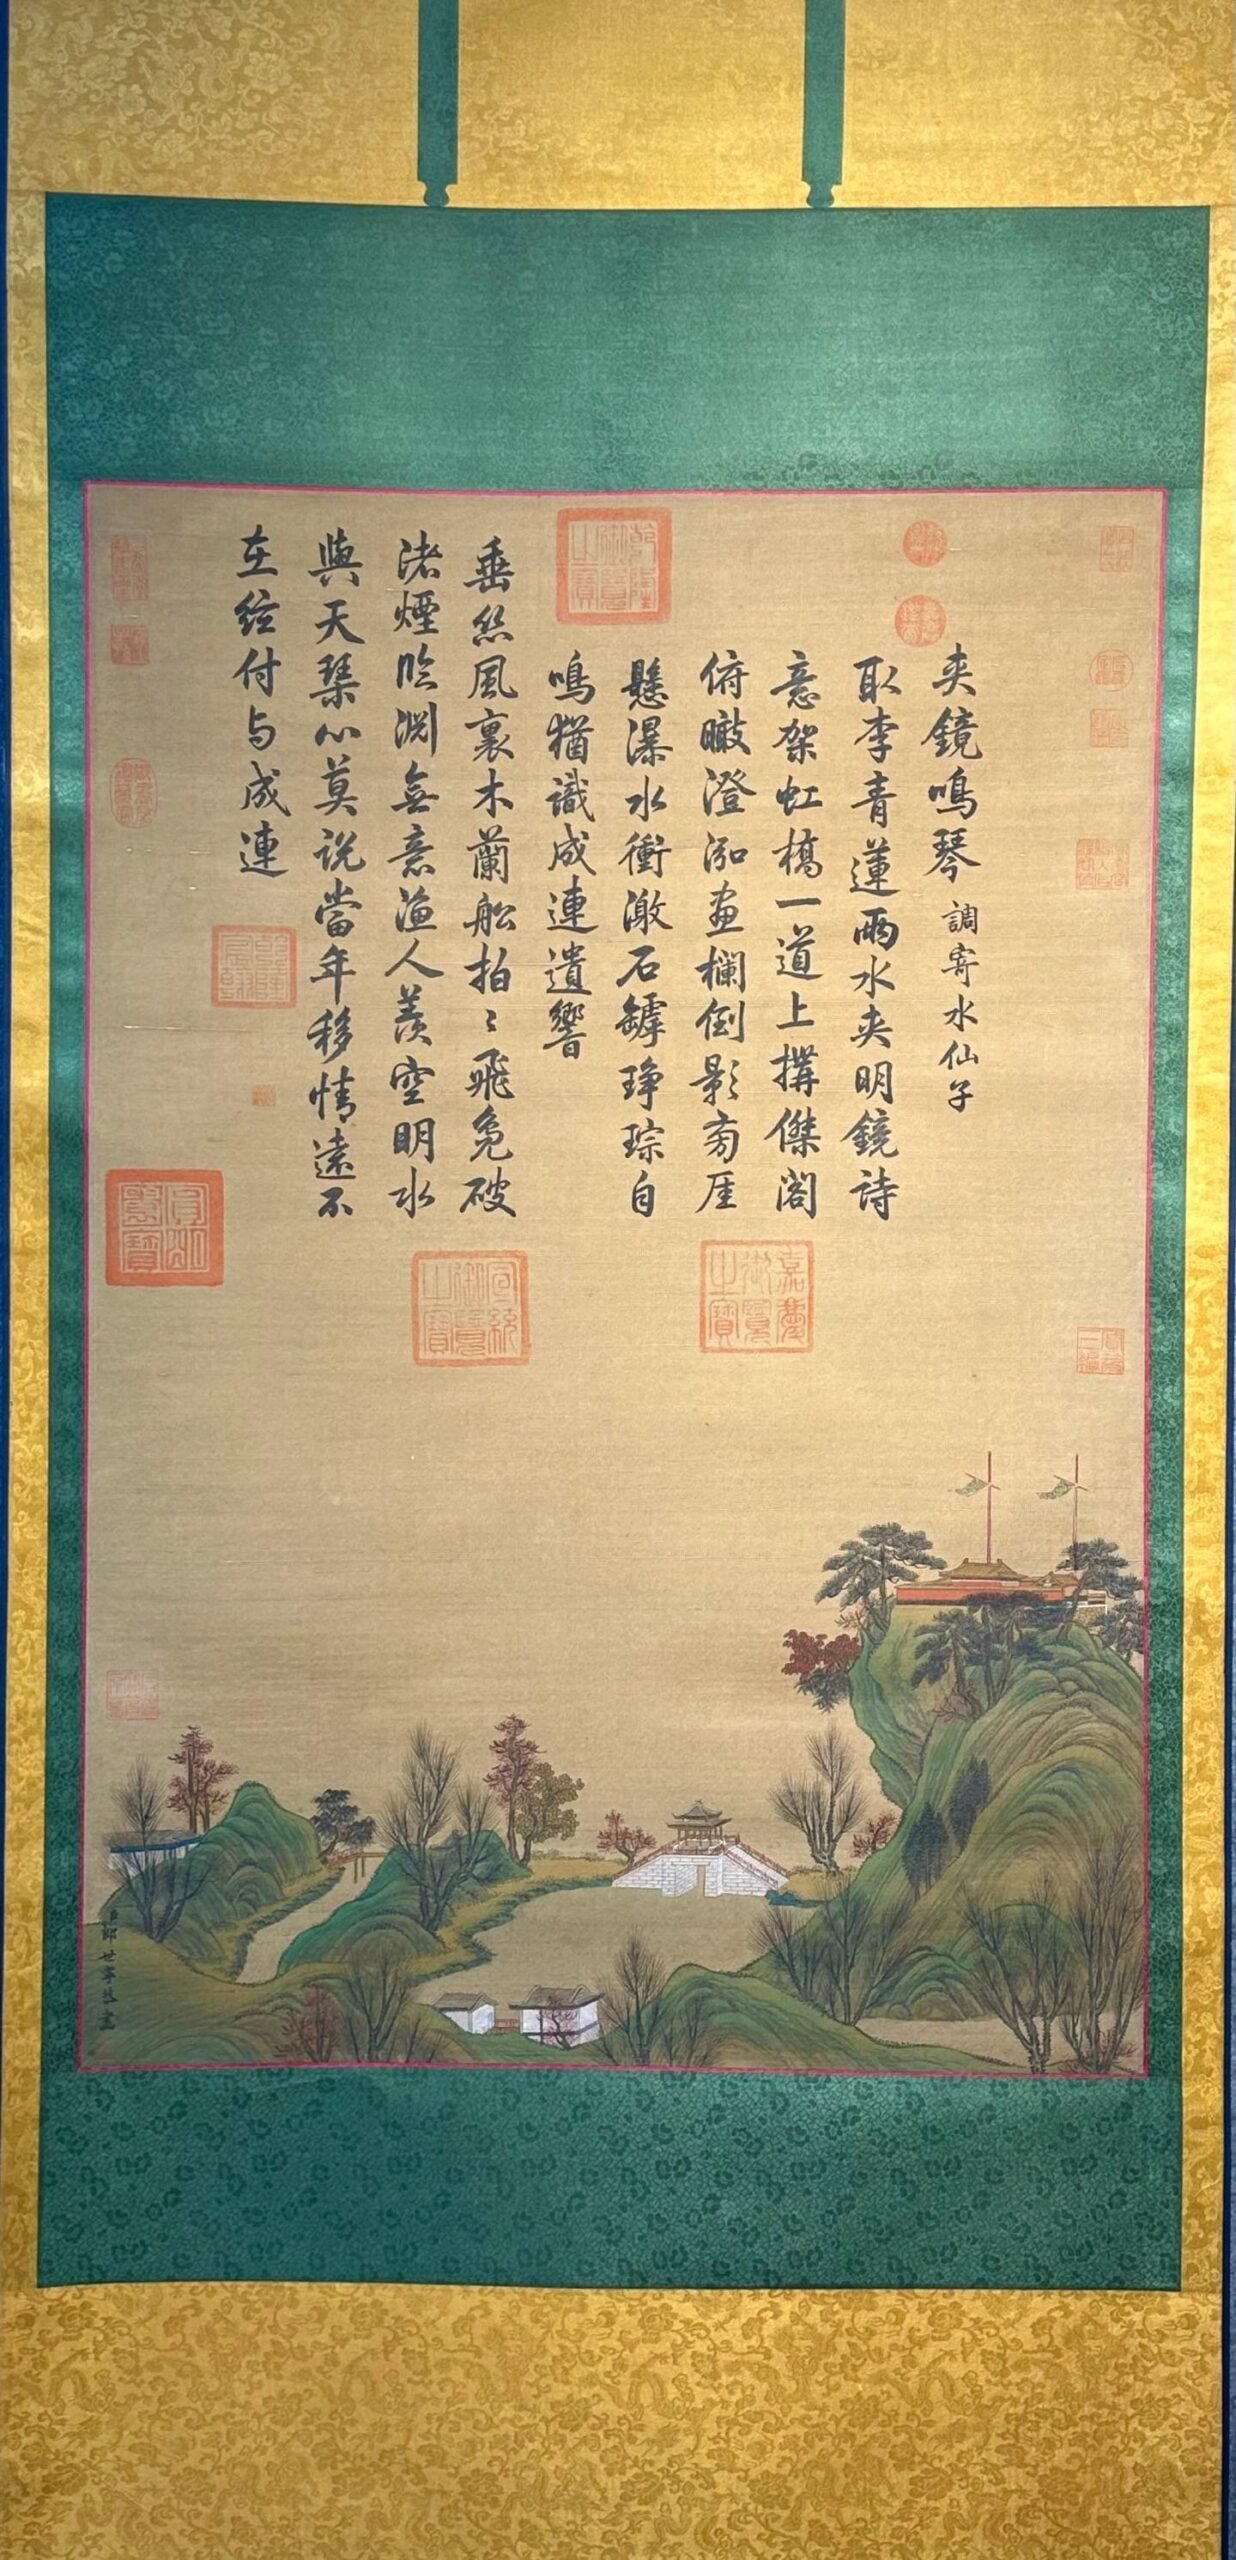 夹鏡鳴琴 調寄水仙子
取李青蓮兩水夹明鏡詩
意架虹橋一道上搆傑閣
俯瞰澄泓畫欄倒影旁厓
懸瀑水衝激石罅琤琮自
鳴猶識成連遺響
垂絲風裏木蘭船拍〻飛鳧破
渚煙臨淵無意漁人羨空明水
與天琴心莫說當年移情遠不
在絃付与成連
乾隆御覽之寶
嘉慶御覽之寶
宣統御覽之寶
乾隆宸翰
臣郎世寧恭畫